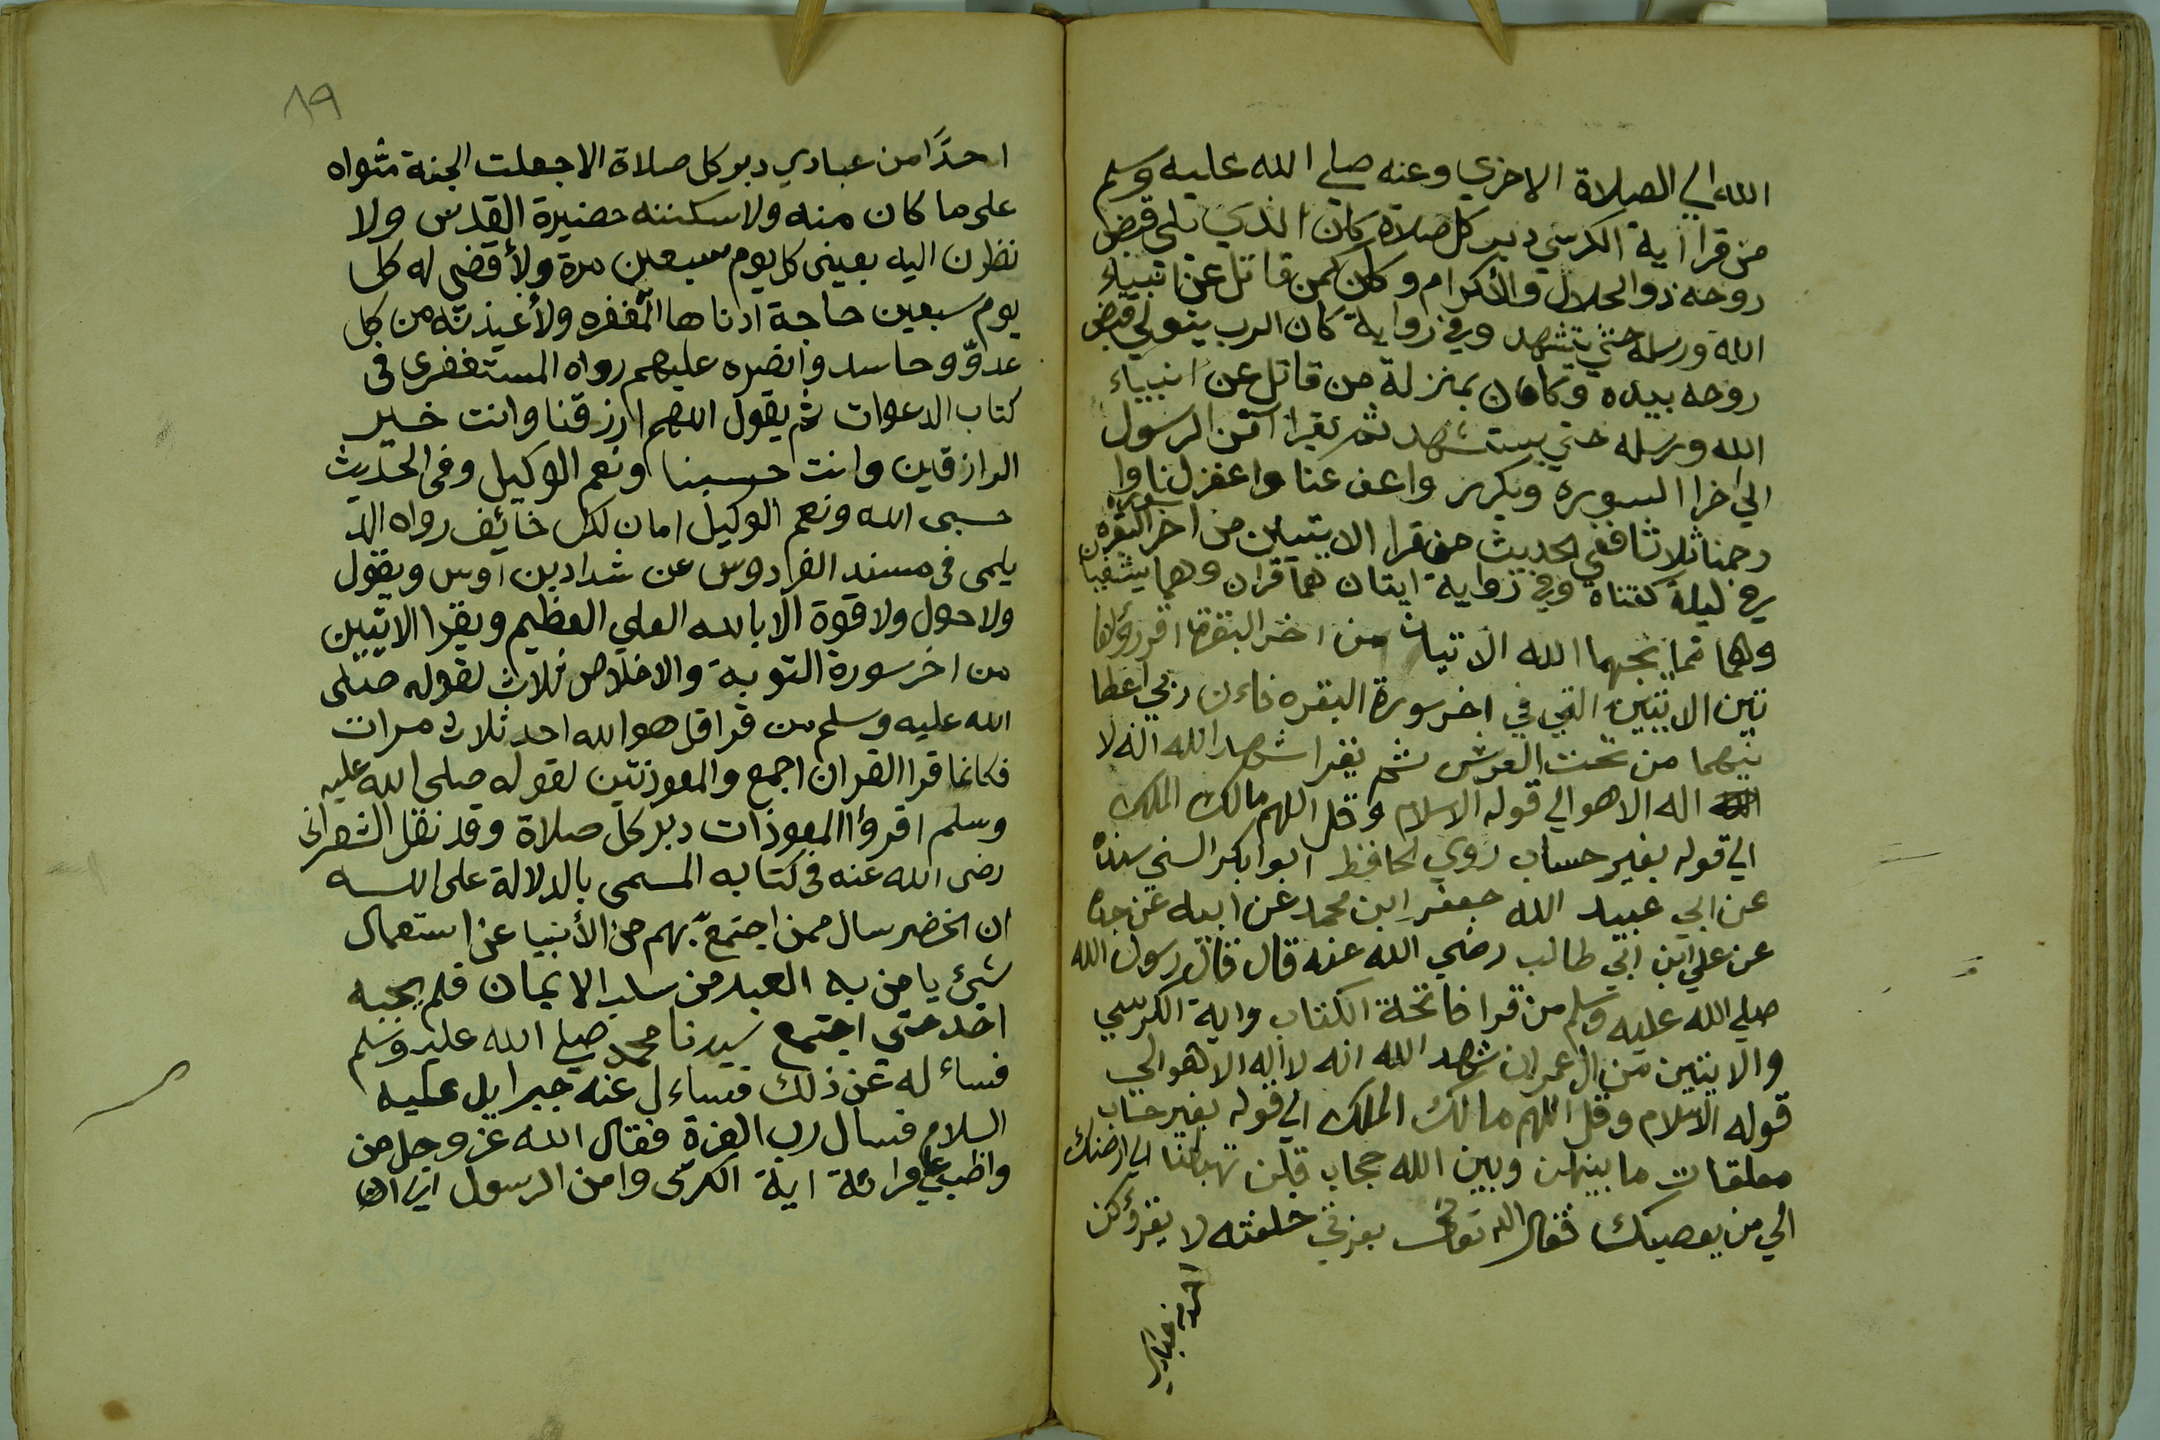 الله الي الصلاة الاخري وعنه صلي الله عليه وسلم
من قرا اية الكرسي دبر كل صلاة كان الذي تلي قبض
روحه ذوالجلال والأكرام وكان كمن قاتل عن انبياء
الله ورسله حتي يتشهد وفي رواية كان الرب يتولي قبض
روحه بيده وكان بمنزلة من قاتل عن انبياء
الله ورسله حتي يستشهد ثم يقرا آمن الرسول
الي اخرا السورة ويكرر واعف عنا واغفر لنا وا
رحمنا ثلاثا ففي الحديث من قرا الايتين من اخر سورة البقرة
في ليلة كفتاه وفي رواية ايتان هما قران وهما يشفيان
وهما مما يحبهما الله الايتان من اخر البقرة اقرؤا ها
تين الايتين التي في اخر سورة البقره فاءن ربي اعطا
نيهما من تحت العرش ثم يقرا شهد الله انه لا
اله الاهو الي قوله الاسلام وقل اللهم مالك الملك
الي قوله بغير حساب روي الحافظ ابوا بكر السني بسنده
عن ابي عبيد الله جعفر ابن محمد عن ابيه عن جده
عن علي ابن ابي طالب رضي الله عنه قال قال رسول الله
صلي الله عليه وسلم من قرا فاتحة الكتاب واية الكرسي
والايتين من ال عمران شهد الله انه لا اله الا هو الي
قوله الاسلام وقل اللهم مالك الملك الي قوله بغير حساب
معلقات ما بينهن وبين الله حجاب قلن تهبطنا الي ارضك
الي من يعصيك فقال الله تعالى بعزتي خلفته لا يقرؤكن
احدا من عبادي
٨٩
احدًا من عبادي دبر كل صلاة الاجعلت الجنة مثواه
على ما كان منه ولاسكننه حضيرة القدس ولا
نظرن اليه بعينى كل يوم سبعين مرة ولأقضي له كل
يوم سبعين حاجة ادناها المغفره ولأعيذنه من كل
عدوّ وحاسد وانصره عليهم رواه المستغفرى فى
كتاب الدعوات ثم يقول اللهم ارزقنا وانت خير
الرازقين وانت حسبنا ونعم الوكيل وفى الحديث
حسبى الله ونعم الوكيل امان لكل خائف رواه الد
يلمى فى مسند الفردوس عن شداد بن اوس ويقول
ولا حول ولا قوة الا بالله العلي العظيم ويقرا الايتين
من اخر سورة التوبة والاخلاص ثلاث لقوله صلى
الله عليه وسلم من قرا قل هو الله احد ثلاث مرات
فكانما قرا القران اجمع والمعوذتين لقوله صلى الله عليه
وسلم اقرؤا المعوذات دبر كل صلاة وقد نقل الشعرانى
رضى الله عنه فى كتابه المسمى بالدلالة على الله
ان الخضر سال ممن اجتمع بهم من الأنبيا عن استعمال
شئ يامن به العبد من سلب الايمان فلم يجبه
احد حتي اجتمع سيدنا محمد صلي الله عليه وسلم
فساء له عن ذلك فساءل عنه جبرايل عليه
السلام فسال رب العزة فقال الله عز وجل من
واظب علي قرائة اية الكرسى وامن الرسول